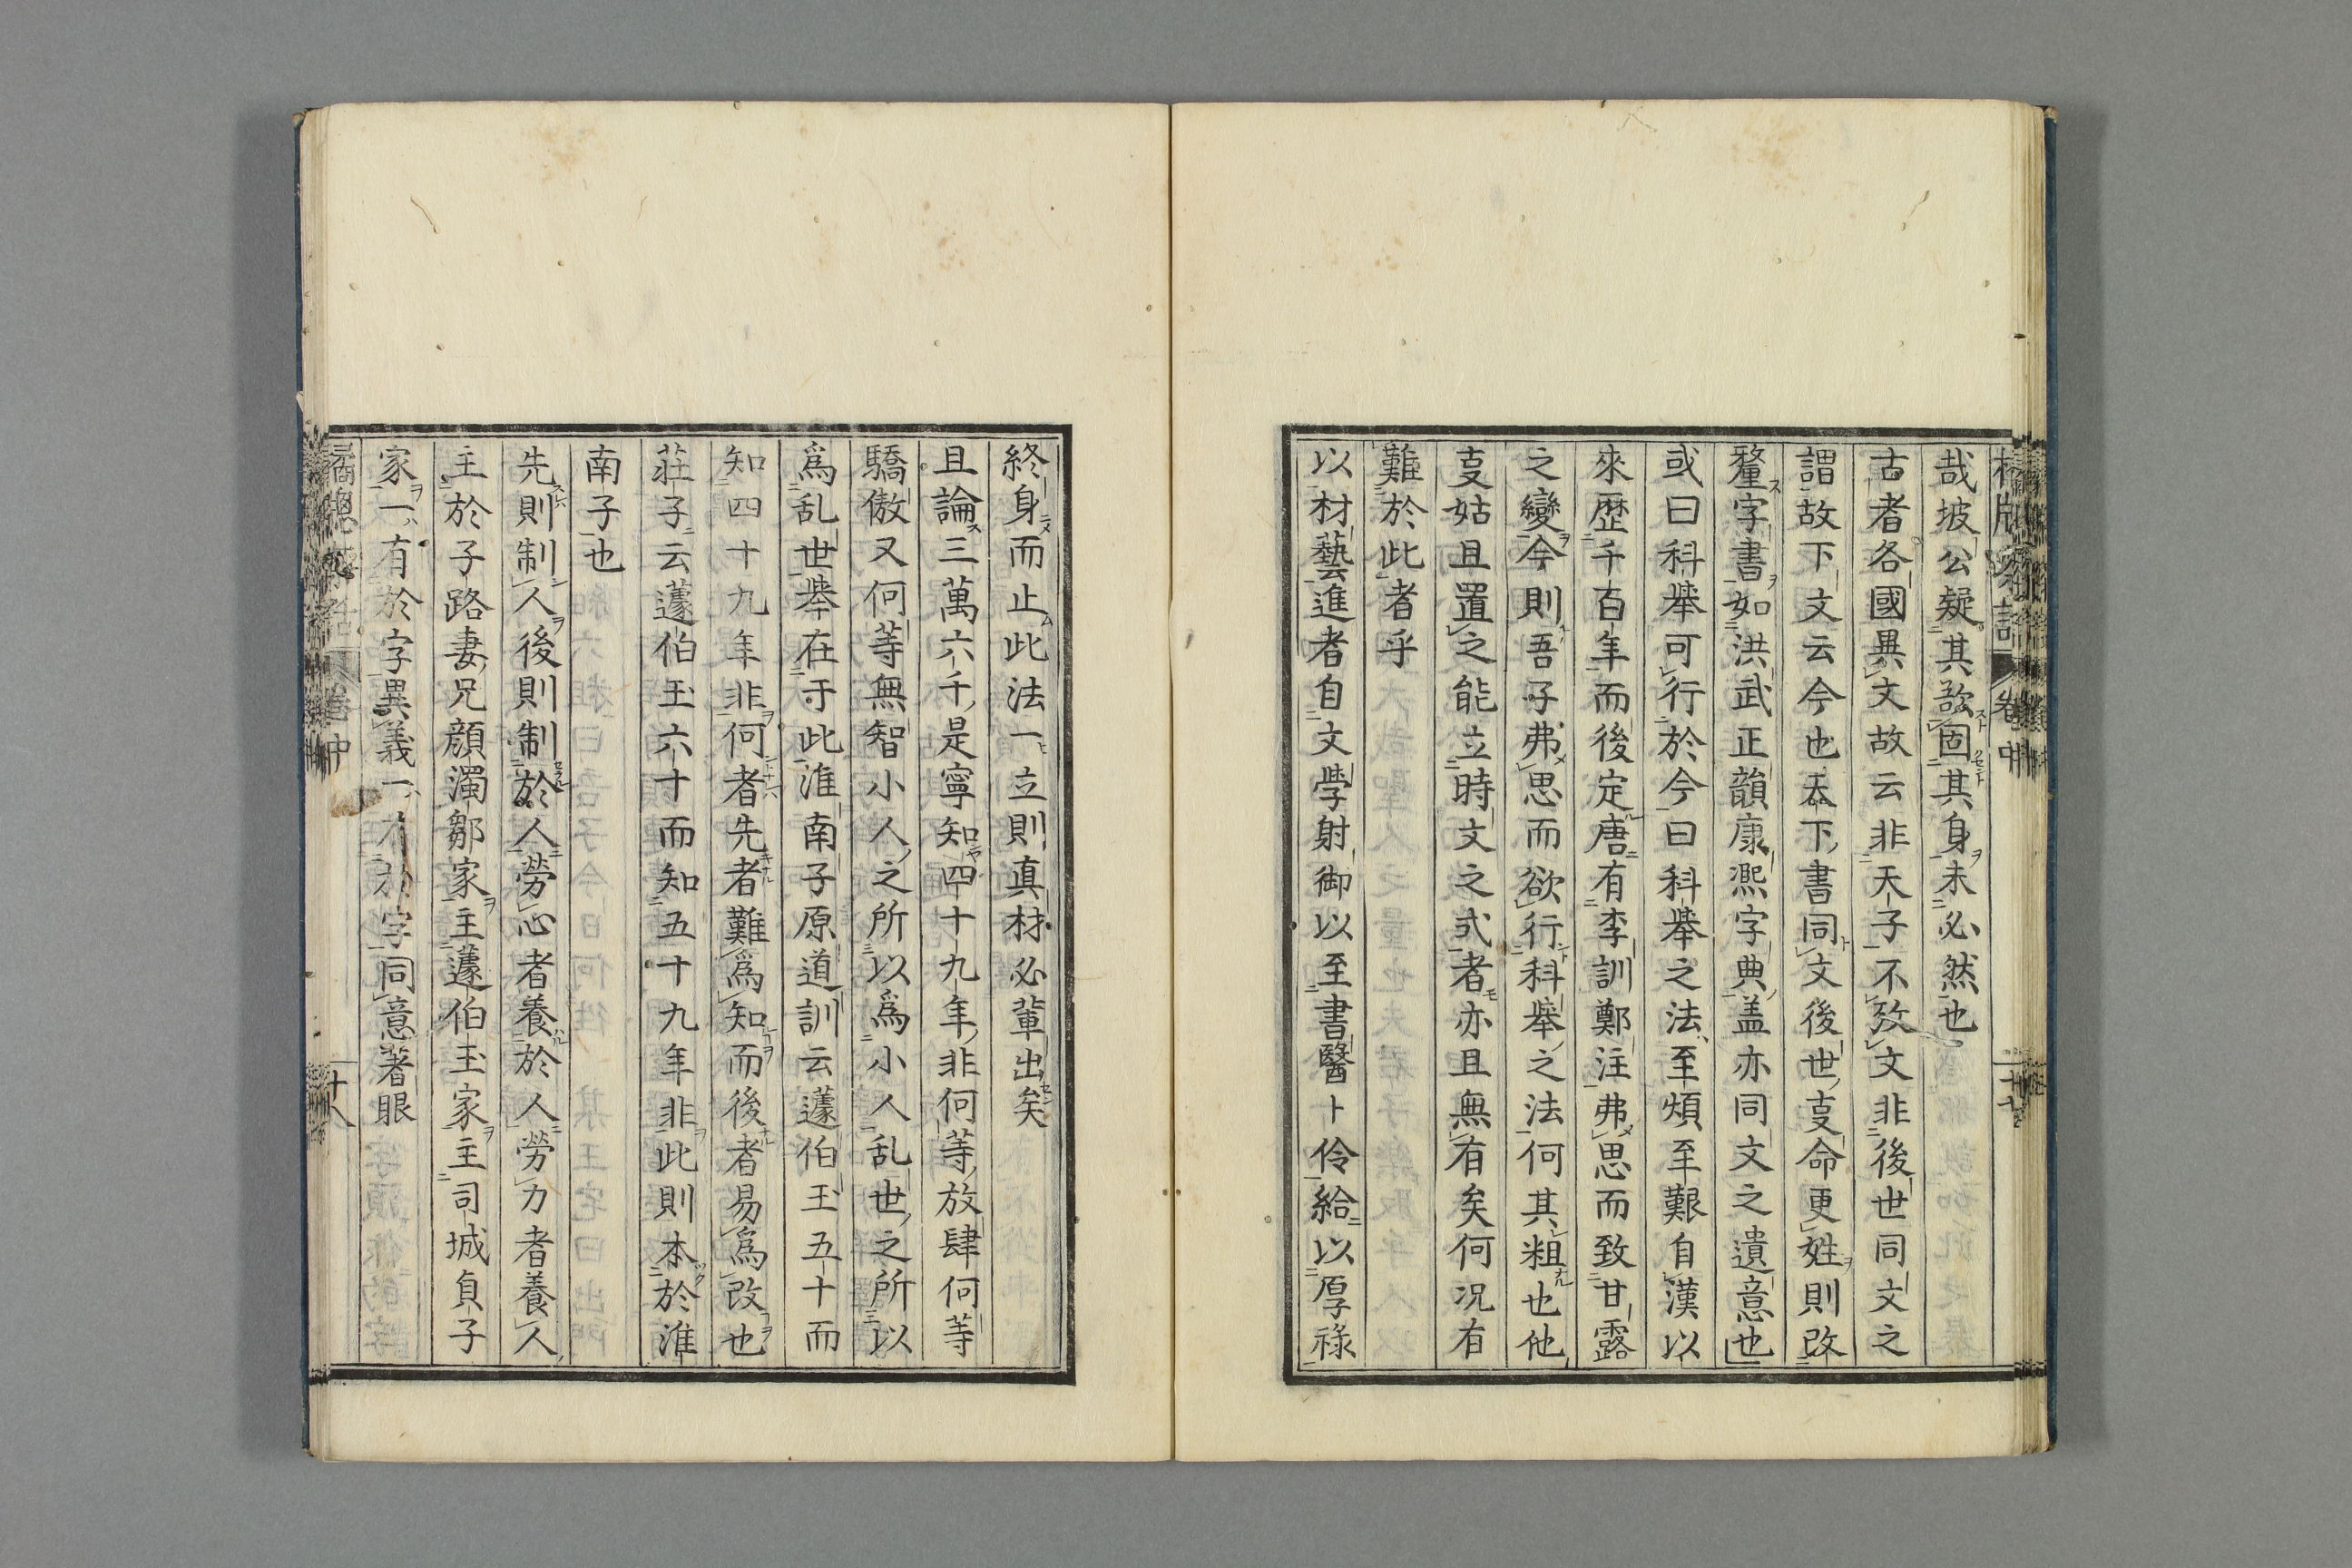 卷中
十七
哉坡公疑其欲固其身未必然也
古者各國異文故云非天子不攷文非後世同文之
謂故下文云今也天下書同文後世叓命更姓則改
釐字書如洪武正韻康熙字典盖亦同文之遺意也
或曰科舉可行於今曰科舉之法至煩至艱自漢以
來歴千百年而後定唐有李訓鄭注弗思而致甘露
之變今則吾子弗思而欲行科舉之法何其粗也他
叓姑且置之能立時文之式者亦且無有矣何況有
難於此者乎
以材藝進者自文學射御以至書醫卜伶給以厚祿
終身而止此法一立則真材必輩出矣
且論三萬六千是寧知四十九年非何等放肆何等
驕傲又何等無智小人之所以爲小人乱世之所以
爲乱世舉在于此淮南子原道訓云蘧伯玉五十而
知四十九年非何者先者難爲知而後者易爲改也
莊子云蘧伯玉六十而知五十九年非此則本於淮
南子也
先則制人後則制於人勞心者養於人勞力者養人
主於子路妻兄顔濁鄒家主蘧伯玉家主司城貞子
家一有於字異義一有於字同意著眼
卷中
十八